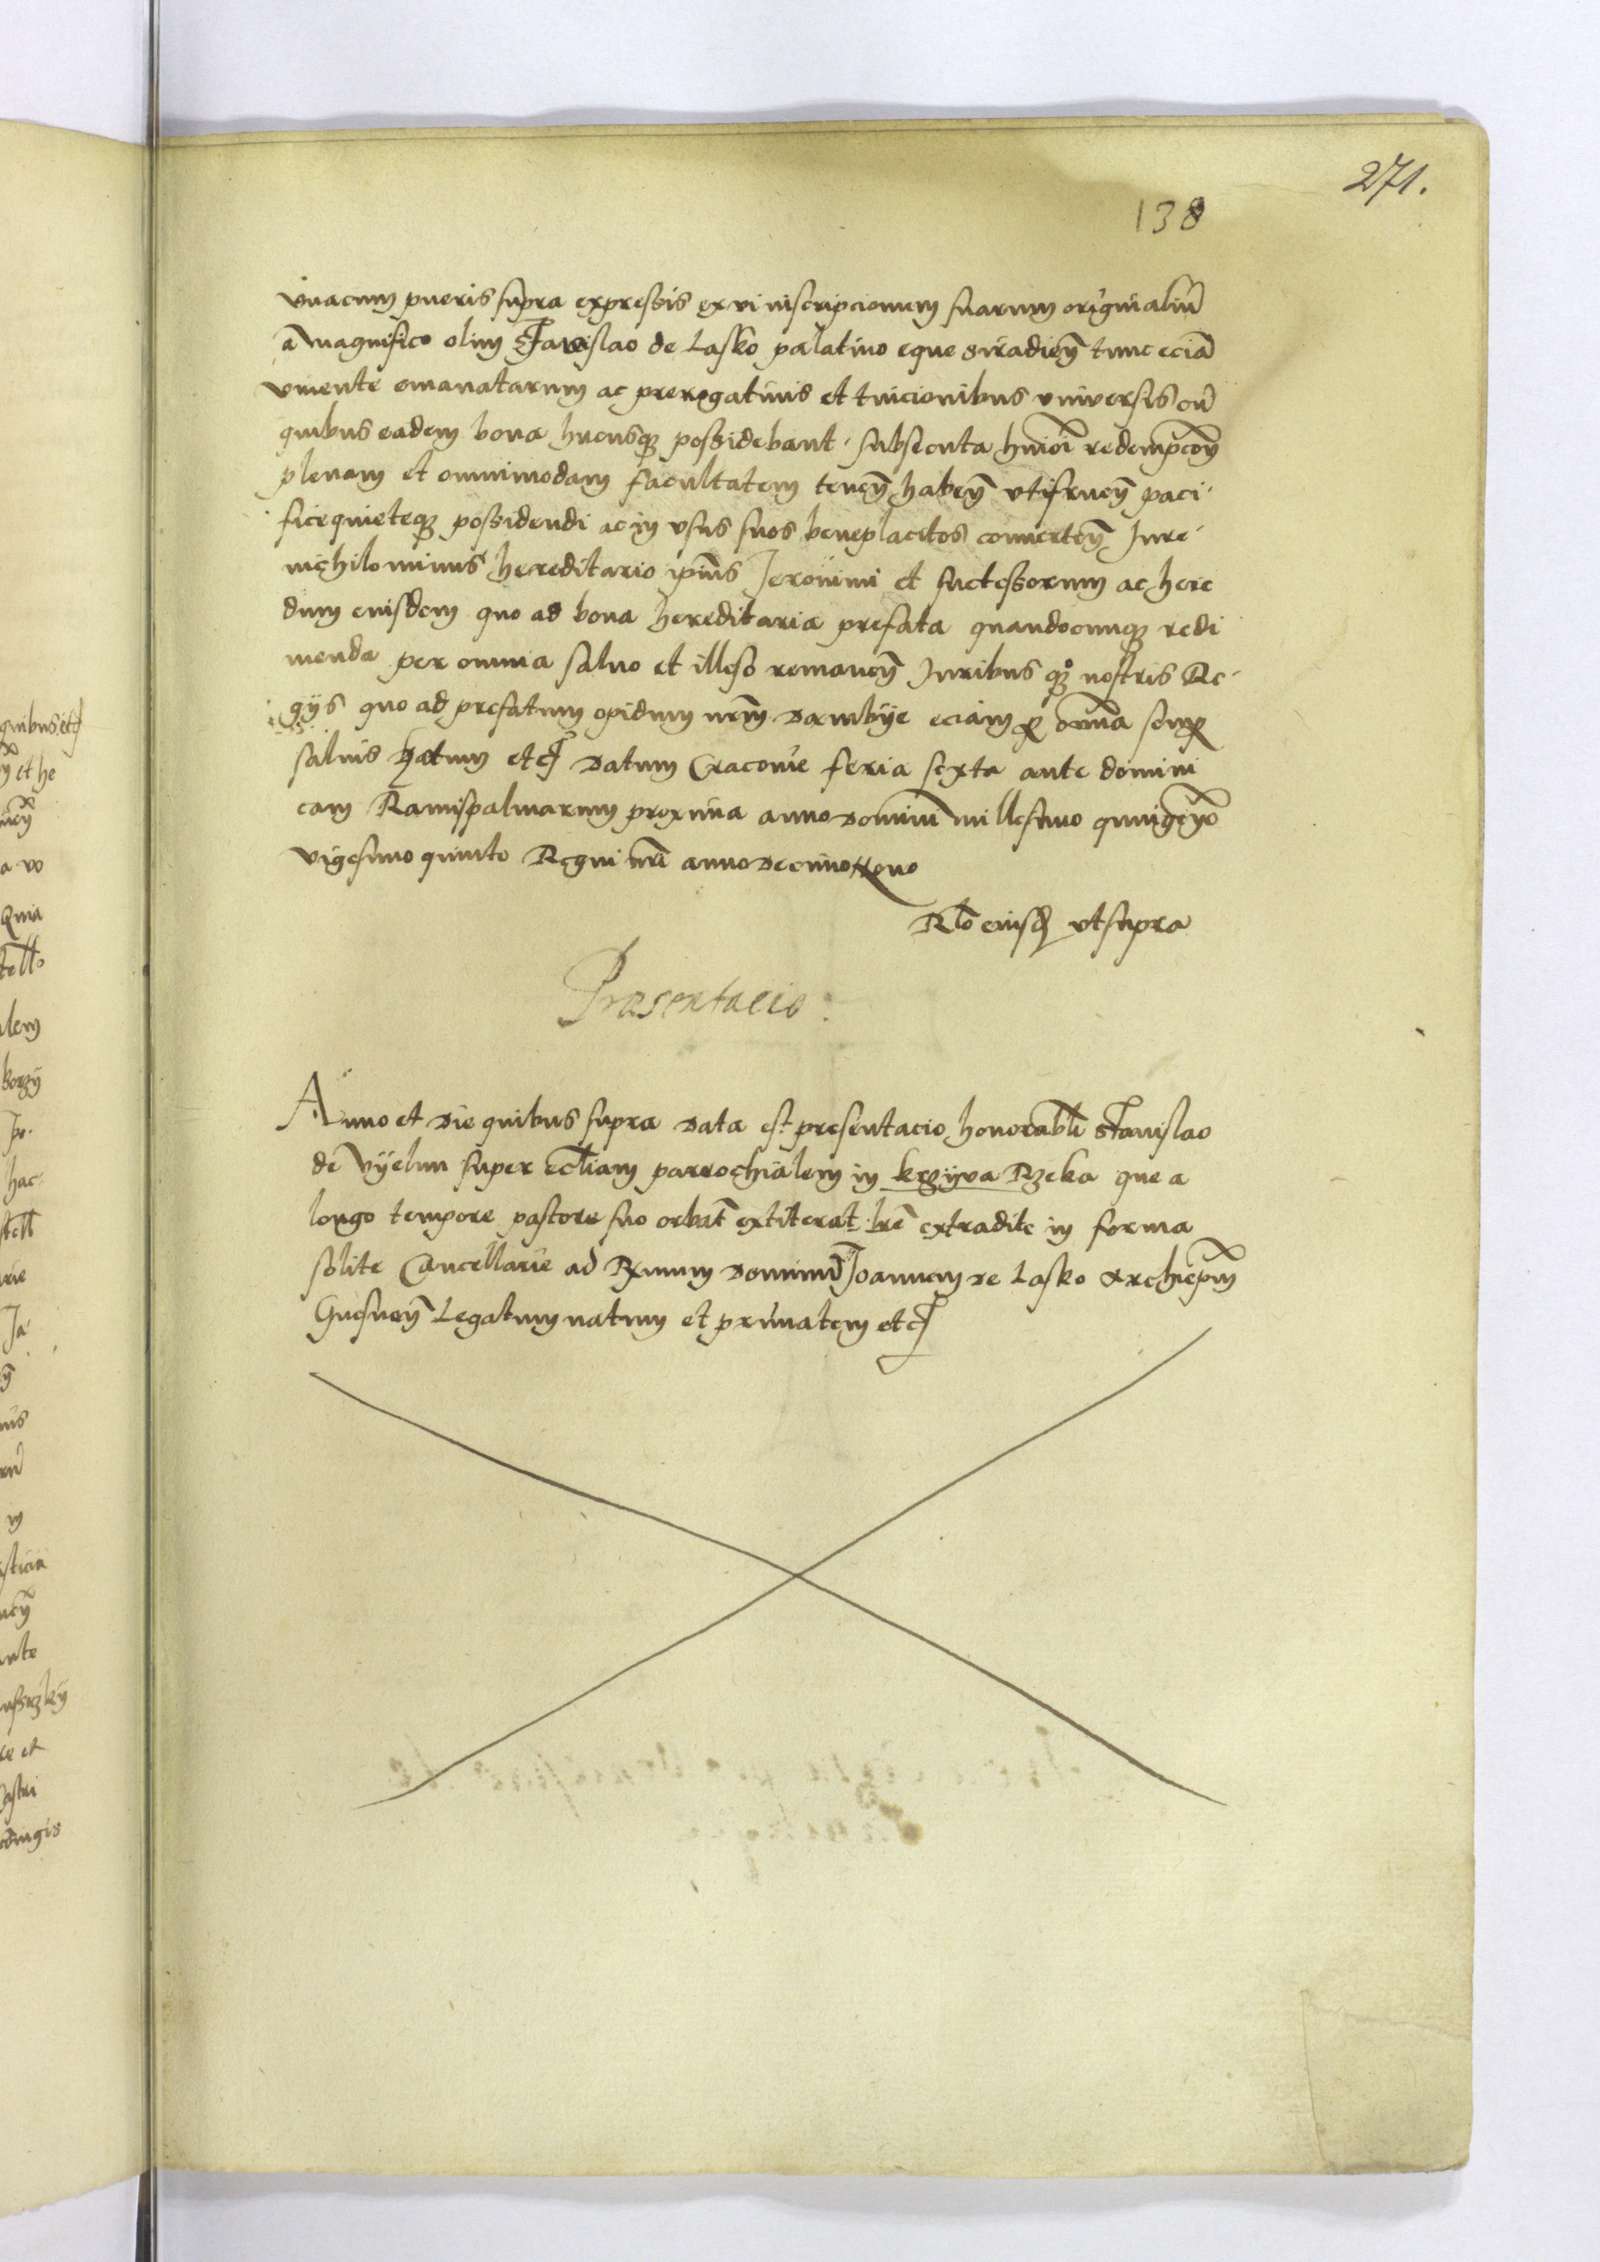 271.
138
vnacum pueris supra expressis ex vi inscripcionum suarum originaliū
a magnifico olim Jaroslao de Lasko palatino eque siradieñ tunc eciā
viuente emanatarum ac prerogatiuis et tuicionibus vniuersis cū
quibus eadem bona hucusq possidebant. subsecuta hmōi redempcōe
plenam et omnimodam facultatem teneñ habeñ vtifrueñ paci-
fice quieteq possidendi ac in vsus suos beneplacitos conuerteñ Jure
nichilominus hereditario ipīus Jeronimi et successorum ac here
dum eiusdem quo ad bona hereditaria prefata quandocunq redi
menda per omnia saluo et illeso remaneñ Juribus q̊ nostris Re-
gÿs quo ad prefatum opidum nrm̄ Dambÿe eciam p om̄ia semp
saluis harum etc Datum Cracouie feria sexta ante domini
cam Ramispalmarum proxima anno Dominī millesimo quingēo
vigesimo quinto Regni nr̄i anno Decimonono
Rl̄o eiusd vtsupra
Præsentacio:
Anno et Die quibus supra Data est presentacio honorabli Stanislao
de Vÿelun super eccl̄iam parrochialem in krzÿva Rzeka que a
longo tempore pastore suo orbat̄ extiterat lr̄e extradite in forma
solite Cancellarie ad Rx̄mum Dominū Joannem de Lasko Archiepm̄
Gnesneñ Legatum natum et primatem etc